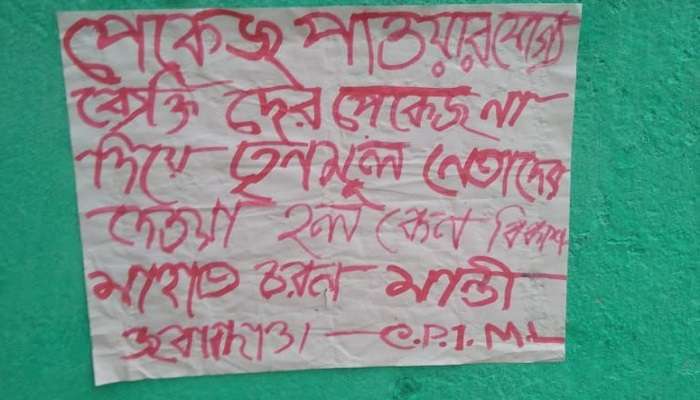 পেকেজ পাওয়ার যোগ্য
বেক্তি দের পেকেজ না
দিয়ে তৃনমূল নেতাদের
দেওয়া হল কেন বিকাশ
মাহাত চরন মান্ডী
জবাব দাও। — C.P.I.M.L